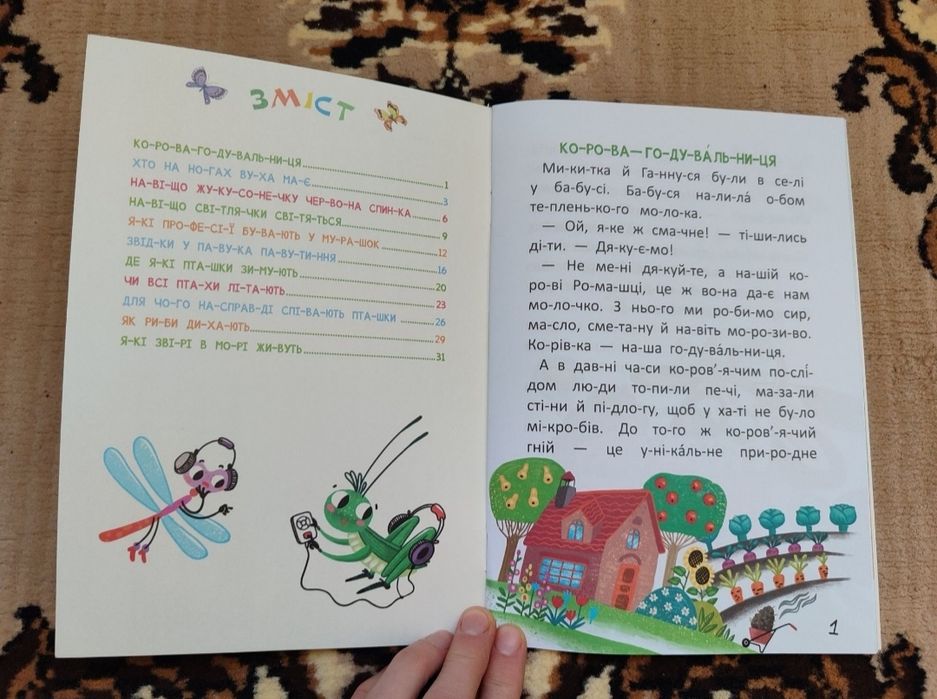 ЗМІСТ
КО-РО-ВА-ГО-ДУ-ВАЛЬ-НИ-ЦЯ 1
ХТО НА НО-ГАХ ВУ-ХА МА-Є 3
НА-ВІ-ЩО ЖУ-КУ-СО-НЕ-ЧКУ ЧЕР-ВО-НА СПИН-КА 6
НА-ВІ-ЩО СВІ-ТЛЯ-ЧКИ СВІ-ТЯ-ТЬСЯ 9
Я-КІ ПРО-ФЕ-СІ-Ї БУ-ВА-ЮТЬ У МУ-РА-ШОК 12
ЗВІД-КИ У ПА-ВУ-КА ПА-ВУ-ТИ-ННЯ 16
ДЕ Я-КІ ПТА-ШКИ ЗИ-МУ-ЮТЬ 20
ЧИ ВСІ ПТА-ХИ ЛІ-ТА-ЮТЬ 23
ДЛЯ ЧО-ГО НА-СПРАВ-ДІ СПІ-ВА-ЮТЬ ПТА-ШКИ 26
ЯК РИ-БИ ДИ-ХА-ЮТЬ 29
Я-КІ ЗВІ-РІ В МО-РІ ЖИ-ВУТЬ 31
КО-РО-ВА — ГО-ДУ-ВА́ЛЬ-НИ-ЦЯ
Ми-ки-тка й Га-нну-ся бу-ли в се-лі
у ба-бу-сі. Ба-бу-ся на-ли-ла́ о-бом
те-плень-ко-го мо-ло-ка.
— Ой, я-ке ж сма-чне! — ті-ши-лись
ді-ти. — Дя-ку-є-мо!
— Не ме-ні дя-куй-те, а на-шій ко-
ро-ві Ро-ма-шці, це ж во-на да-є нам
мо-ло-чко. З ньо-го ми ро-би-мо сир,
ма-сло, сме-та-ну й на-віть мо-ро-зи-во.
Ко-рів-ка — на-ша го-ду-ва́ль-ни-ця.
А в дав-ні ча-си ко-ров'-я-чим по-слі́-
дом лю-ди то-пи-ли пе-чі, ма-за-ли
сті-ни й пі-дло-гу, щоб у ха-ті не бу-ло
мі-кро-бів. До то-го ж ко-ров'-я-чий
гній — це у-ні-ка́ль-не при-ро-дне
1